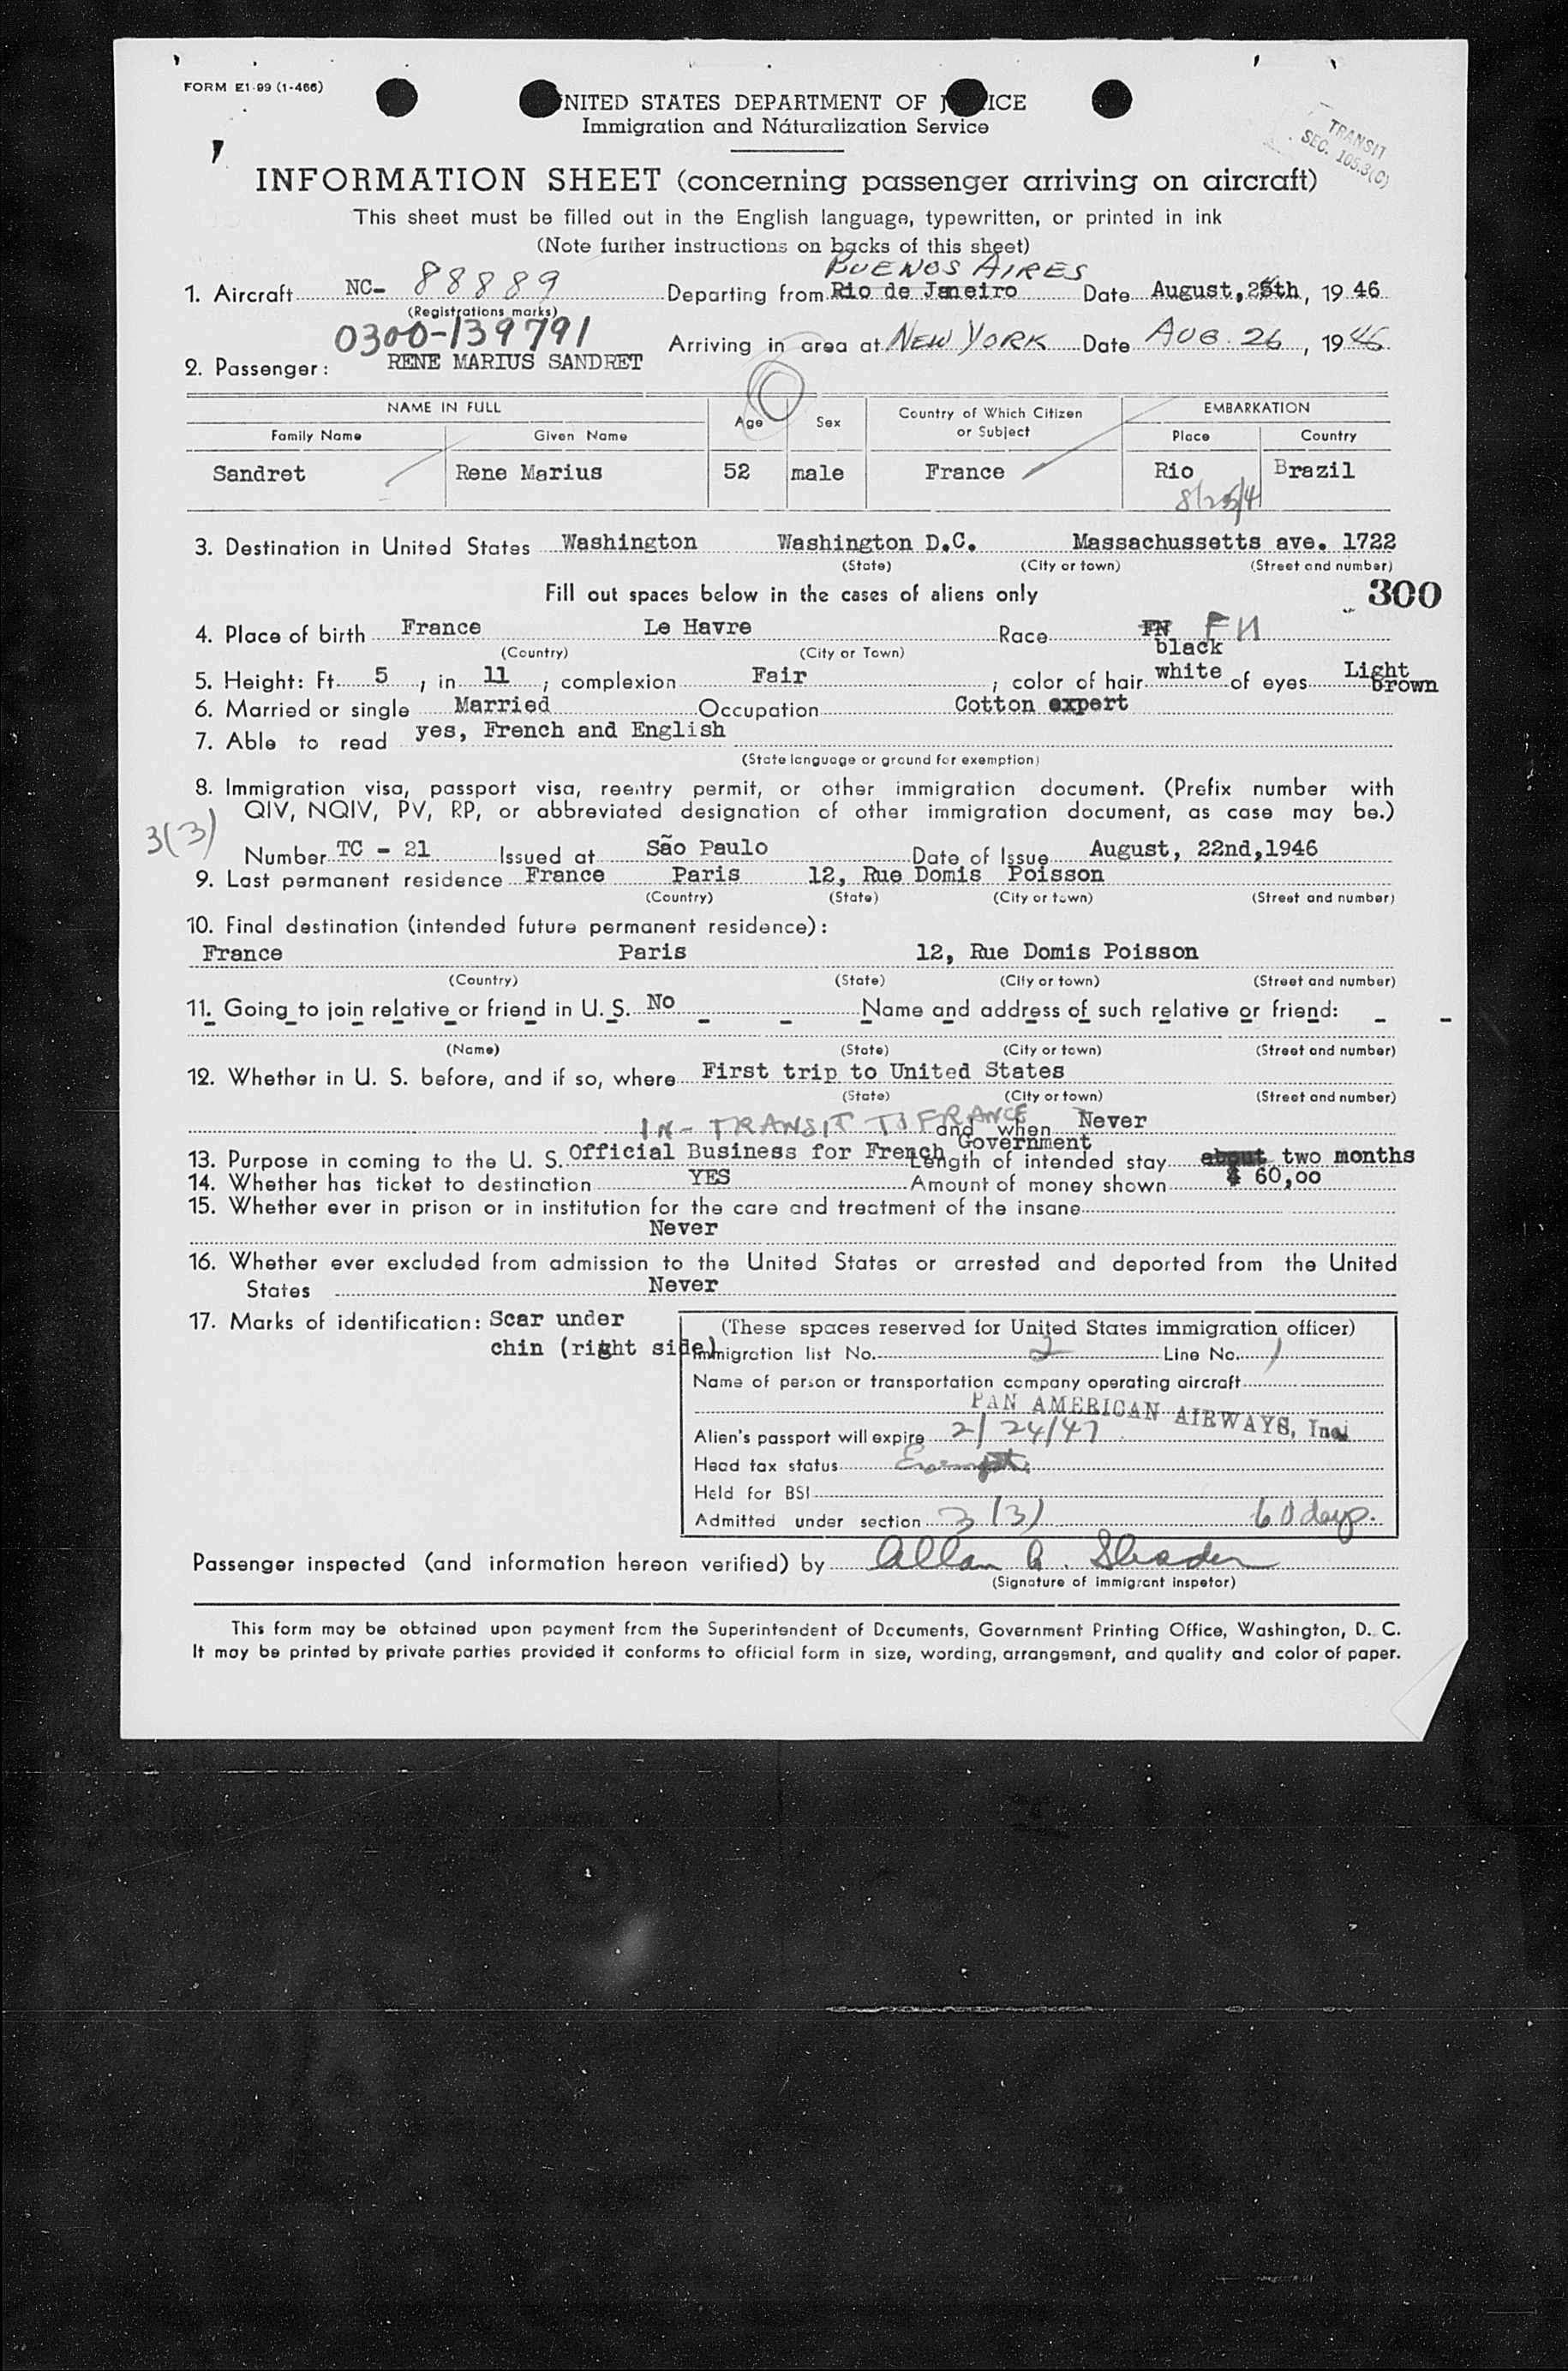 FORM E1-99 (1-466)
UNITED STATES DEPARTMENT OF JUSTICE
Immigration and Naturalization Service
TRANSIT
SEC. 105.3(C)
INFORMATION SHEET (concerning passenger arriving on aircraft)
This sheet must be filled out in the English language, typewritten, or printed in ink
(Note further instructions on backs of this sheet)
BUENOS AIRES
1. Aircraft NC- 88889 Departing from Rio de Janeiro Date August, 25th, 19 46
(Registrations marks)
0300-139791
Arriving in area at NEW YORK Date AUG. 26, 19 46
2. Passenger: RENE MARIUS SANDRET
NAME IN FULL Age Sex Country of Which Citizen or Subject EMBARKATION
Family Name Given Name Place Country
Sandret Rene Marius 52 male France Rio Brazil
8/25/4
3. Destination in United States Washington Washington D.C. Massachussetts ave. 1722
(State) (City or town) (Street and number)
Fill out spaces below in the cases of aliens only
300
4. Place of birth France Le Havre Race FN FN
(Country) (City or Town)
black
5. Height: Ft. 5, in 11; complexion Fair; color of hair white of eyes Light brown
6. Married or single Married Occupation Cotton expert
7. Able to read yes, French and English
(State language or ground for exemption)
8. Immigration visa, passport visa, reentry permit, or other immigration document. (Prefix number with
QIV, NQIV, PV, RP, or abbreviated designation of other immigration document, as case may be.)
3(3)
Number TC - 21 Issued at São Paulo Date of Issue August, 22nd,1946
9. Last permanent residence France Paris 12, Rue Domis Poisson
(Country) (State) (City or town) (Street and number)
10. Final destination (intended future permanent residence):
France Paris 12, Rue Domis Poisson
(Country) (State) (City or town) (Street and number)
11. Going to join relative or friend in U. S. No Name and address of such relative or friend:
(Name) (State) (City or town) (Street and number)
12. Whether in U. S. before, and if so, where First trip to United States
(State) (City or town) (Street and number)
IN-TRANSIT TO FRANCE and when Never
13. Purpose in coming to the U. S. Official Business for French Government Length of intended stay about two months
14. Whether has ticket to destination YES Amount of money shown $ 60,00
15. Whether ever in prison or in institution for the care and treatment of the insane
Never
16. Whether ever excluded from admission to the United States or arrested and deported from the United
States Never
17. Marks of identification: Scar under
chin (right side)
(These spaces reserved for United States immigration officer)
Immigration list No. 2 Line No. 1
Name of person or transportation company operating aircraft
PAN AMERICAN AIRWAYS, Inc.
Alien's passport will expire 2/24/47
Head tax status Exempt
Held for BSI
Admitted under section 3(3) 60 days.
Passenger inspected (and information hereon verified) by Allan
(Signature of immigrant inspetor)
This form may be obtained upon payment from the Superintendent of Documents, Government Printing Office, Washington, D. C.
It may be printed by private parties provided it conforms to official form in size, wording, arrangement, and quality and color of paper.